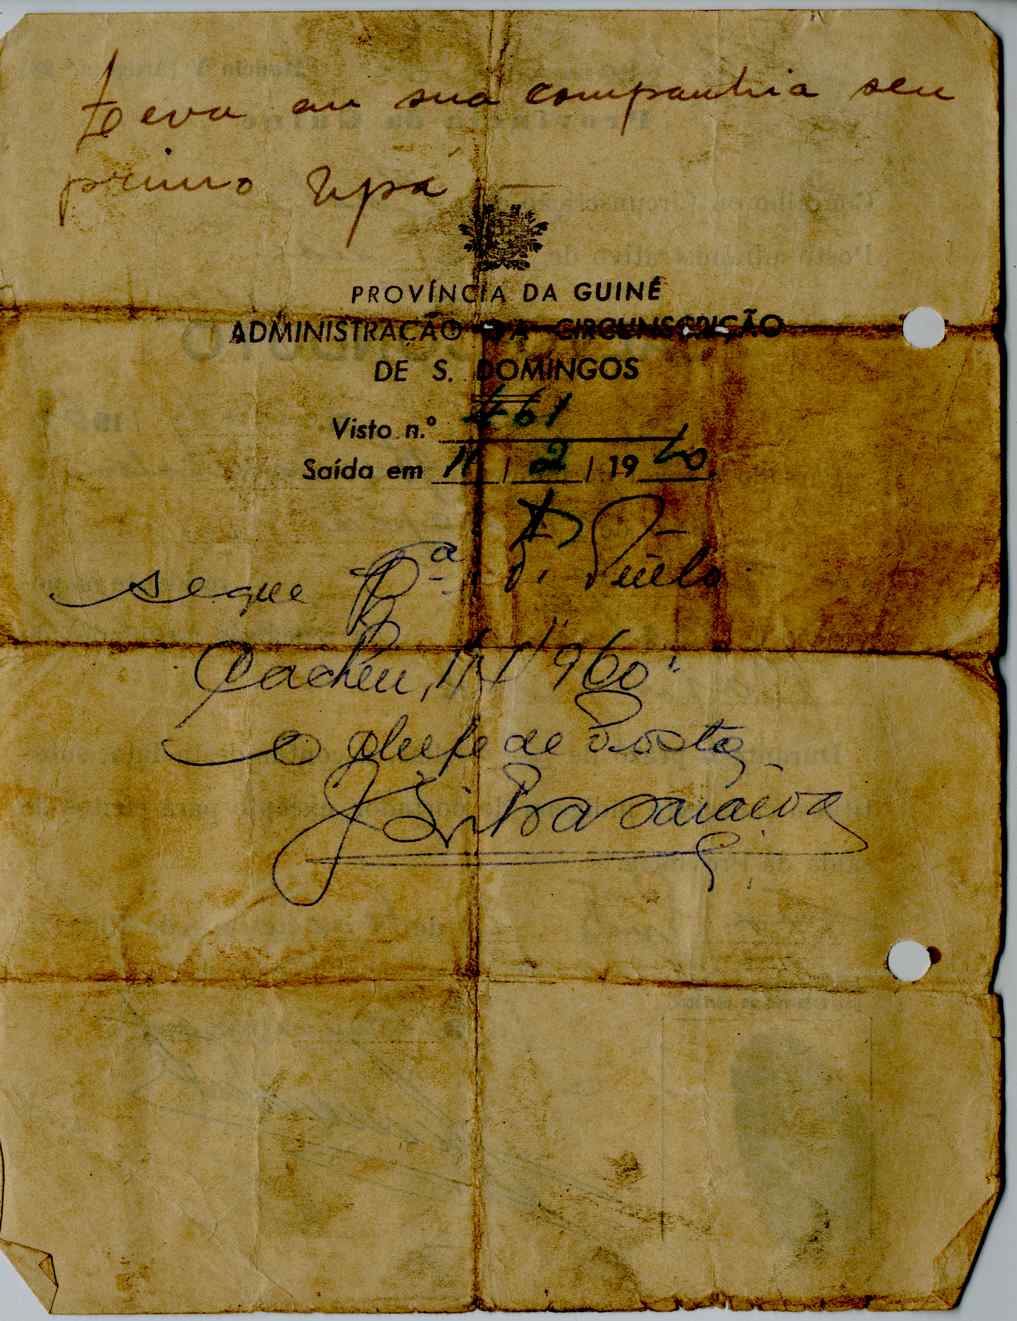 Leva em sua companhia seu
primo Upá
PROVÍNCIA DA GUINÉ
ADMINISTRAÇÃO DA CIRCUNSCRIÇÃO
DE S. DOMINGOS
Visto n.º 461
Saída em 11 / 2 / 1960
segue Pª S.
Cacheu, 11/ /960.
O Chefe de Posto
J Silva Saraiva